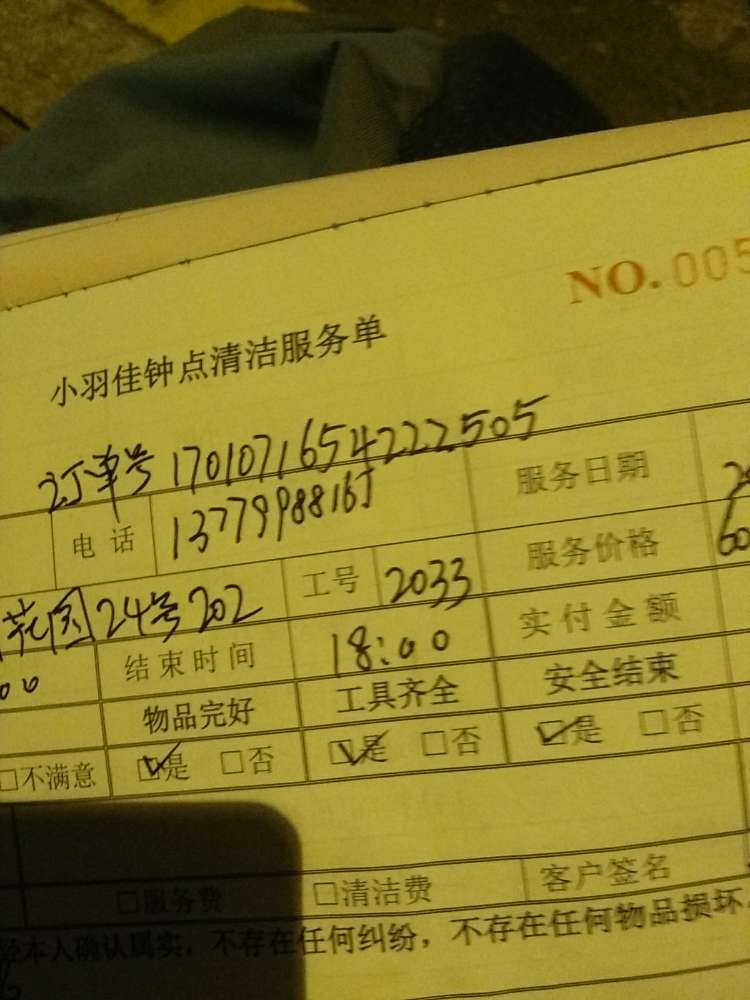 NO.005
小羽佳钟点清洁服务单
订单号 1701071654222505
电话 服务日期
花园24号202 工号 2033 服务价格 60
00 结束时间 18:00 实付金额
物品完好 工具齐全 安全结束
□不满意 ☑是 □否 ☑是 □否 ☑是 □否
□服务费 □清洁费 客户签名
本人确认属实，不存在任何纠纷，不存在任何物品损坏